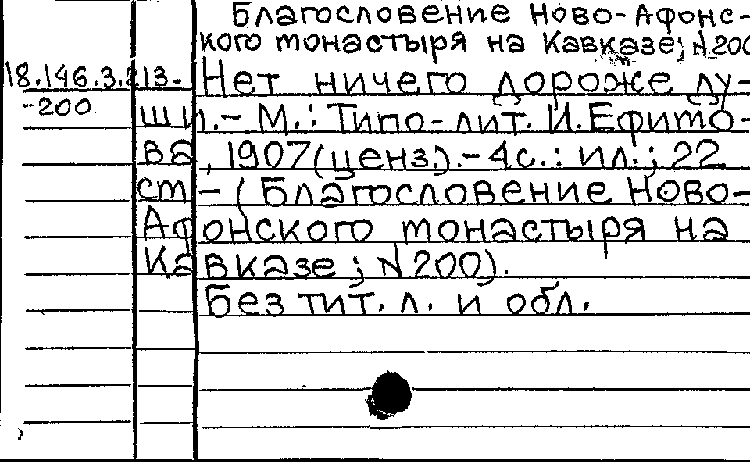 Благословение Ново-Афонс-
кого монастыря на Кавказе; N 200
18.146.3.213- Нет ничего дороже ду-
-200 ши.- М.: Типо-лит. И.Ефимо-
ва, 1907(ценз).-4с.: ил.; 22
ст-(Благословение Ново-
Афонского монастыря на
Кавказе; N 200).
Без тит. л. и обл.